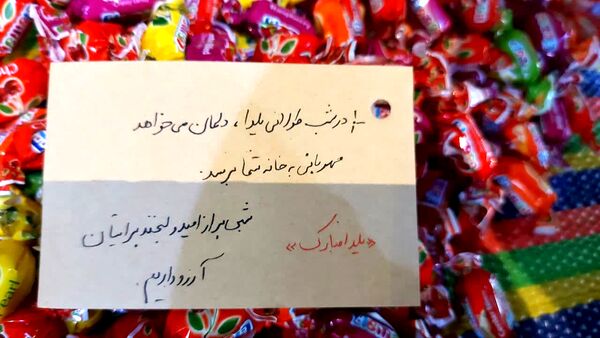 در شب طولانی یلدا، دلمان می‌خواهد
مهربانی به خانه شما برسد.
شبی پر از امید و لبخند برایتان
آرزو داریم.
«یلدا مبارک»